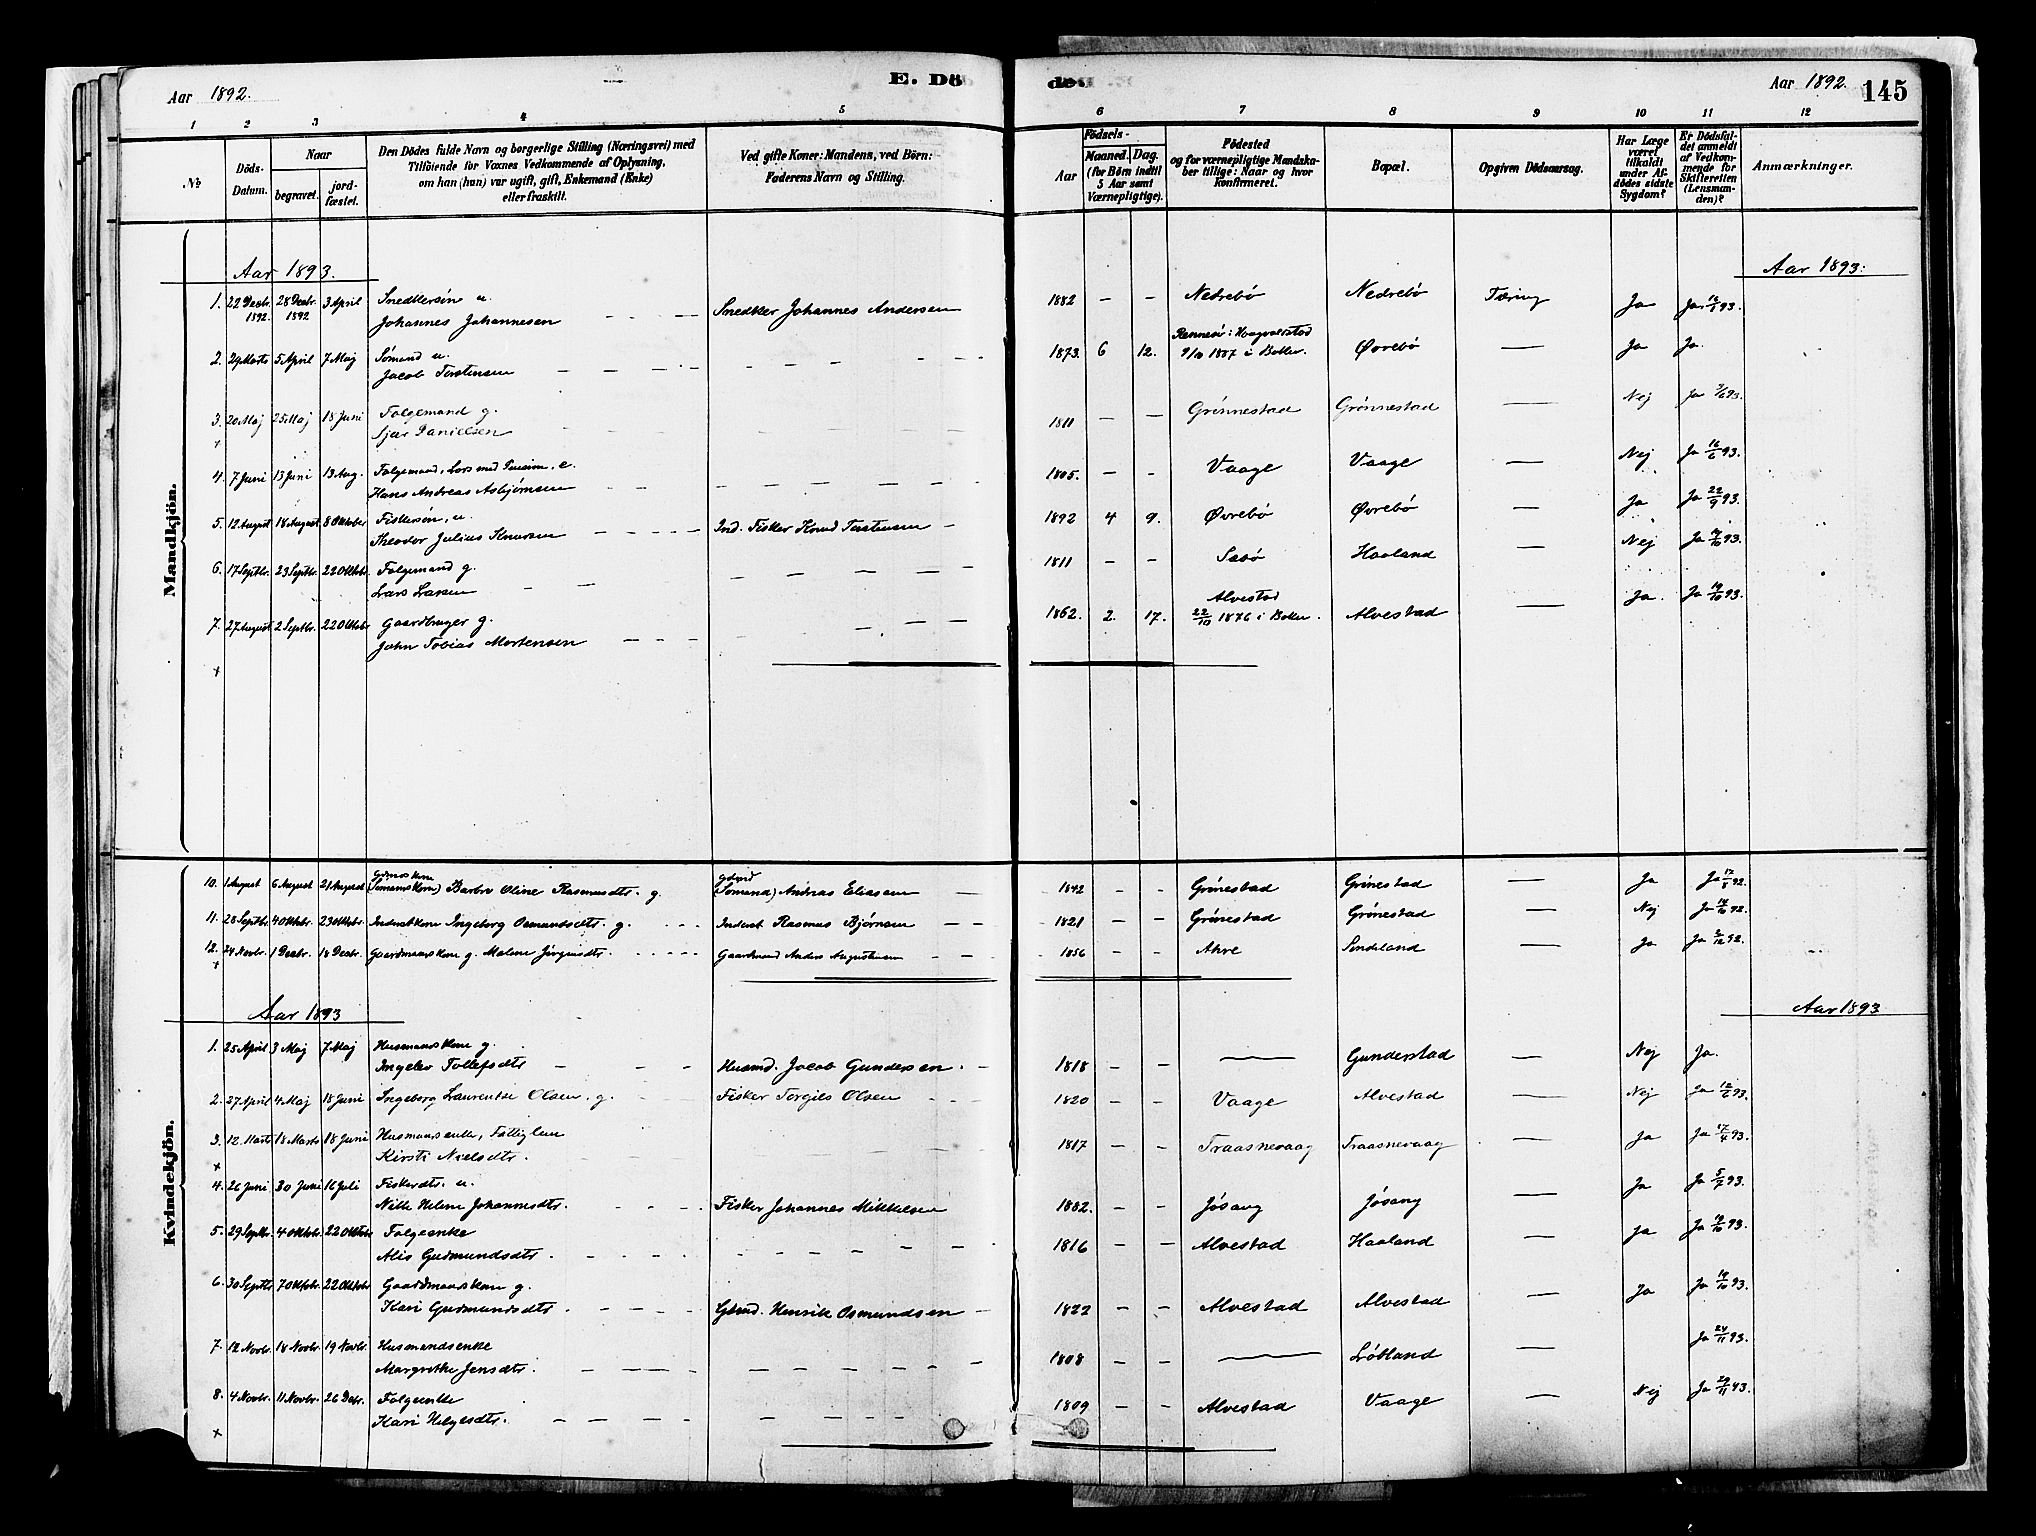 Aar 1892. E. Dö de. Aar 1892. 145
1 2 3 4 5 6 7 8 9 10 11 12
№ Döds-Datum. Naar begravet. jord-fæstet. Den Dödes fulde Navn og borgerlige Stilling (Næringsvei) med Tilföiende for Voxnes Vedkommende af Oplysning, om han (hun) var ugift, gift, Enkemand (Enke) eller fraskilt. Ved gifte Koner: Mandens, ved Börn: Faderens Navn og Stilling. Födsels- Aar Maaned. Dag. (for Börn indtil 5 Aar samt Værnepligtige). Födested og for værnepligtige Mandska-ber tillige: Naar og hvor konfirmeret. Bopæl. Opgiven Dödsaarsag. Har Læge været tilkaldt under Af-dödes sidste Sygdom? Er Dödsfal-det anmeldt af Vedkom-mende for Skifteretten (Lensman-den)? Anmærkninger.
Mandkjön.
Aar 1893. Aar 1893.
1. 22 Decbr. 1892. 28 Decbr. 1892 3 April Snedkersøn u. Johannes Johannesen Snedker Johannes Andersen 1882 - - Nedrebø Nedrebø Tæring Ja Ja 93.
2. 29 Marts 5 April 7 Maj Sømand u. Jacob Terstensen 1873. 6 12. 1887 i Bokn. Øvrebø — Ja Ja.
3. 20 Maj 25 Maj 18 Juni Folgemand g. Sjur Danielsen 1811 - - Grønnestad Grønnestad — Nej Ja 93.
+
4. 7 Juni 13 Juni 13 Aug. Folgemand, e. Hans Andreas Asbjørnsen 1805. - - Vaage Vaage — Nej Ja 16/6 93.
5. 12 August 18 August 8 Oktober Fiskersøn, u. Theodor Julius Knutsen Ind. Fisker Knud Terstensen 1892 4 9. Øvrebø Øvrebø — Ja Ja 22/9 93.
6. 17 Septbr. 23 Septbr. 22 Oktbr. Folgemand g. Lars Larsen 1811 - - Sæbø Haaland — Nej Ja 19/10 93.
7. 27 August 2 Septbr. 22 Oktobr. Gaardbruger g. John Tobias Mortensen 1862. 2. 17. Alvestad 22/10 1876 i Bokn. Alvestad — Ja. Ja 19/10 93.
+
Kvindekjön.
10. 1 August 6 August 21 August (Sømanskone) Barbro Oline Rasmusdtr. g. (Sømand) Andreas Eliasen 1842 - - Grönestad Grönestad — Ja Ja 17/8 92.
11. 28 Septbr. 4 Oktbr. 23 Oktbr. Inderstkone Ingeborg Osmundsdtr. g. Inderst Rasmus Bjørnsen 1821 - - Grönestad Grönestad — Nej Ja 92.
12. + 24 Novbr. 1 Decbr. 18 Decbr. Gaardmandskone g. Malene Jörgensdtr. Gaardmand Anders Augustinsen 1856 - - Ahre — Ja Ja 2/12 92.
Aar 1893 Aar 1893
1. 25 April 3 Maj 7 Maj Husmandskone g. Ingelev Tollefsdtr Husmd. Jacob Gundersen. 1818 - - — Gunderstad — Nej Ja.
2. 27 April 4 Maj 18 Juni Ingeborg Laurentse Olsen. g. Fisker Torgils Olsen 1820 - - Vaage Alvestad — Nej Ja 12/6 93.
3. 12 Marts 18 Marts 18 Juni Husmandsenke, Fattiglem Kirsti Nielsdtr. 1817 - - Traasnevaag Traasnevaag — Ja Ja 17/4 93.
+
4. 26 Juni 30 Juni 16 Juli Fiskerdtr. u. Nille Helene Johannesdtr. Fisker Johannes Mikkelsen 1882. - - Jösang Jösang — Ja Ja 5/7 93.
5. 29 Septbr. 4 Oktbr. 22 Oktbr Folgeenke Alis Gudmundsdtr. 1816 - - Alvestad Haaland — Ja Ja 19/10 93.
6. 30 Septbr 7 Oktbr. 22 Oktbr Gaardmandskone g. Kari Gudmundsdtr. Gbmd. Henrik Osmundsen 1822 - - Alvestad Alvestad — Ja Ja 19/10 93.
7. 12 Novbr. 18 Novbr. 19 Novbr. Husmandsenke Margrethe Jensdtr. 1808 - - — Løkland — Ja 24/11 93.
8. 4 Novbr. 11 Novbr. 26 Debr. Folgeenke Kari Helgesdtr. 1809 - - Alvestad Vaage — Nej Ja 29/11 93.
+